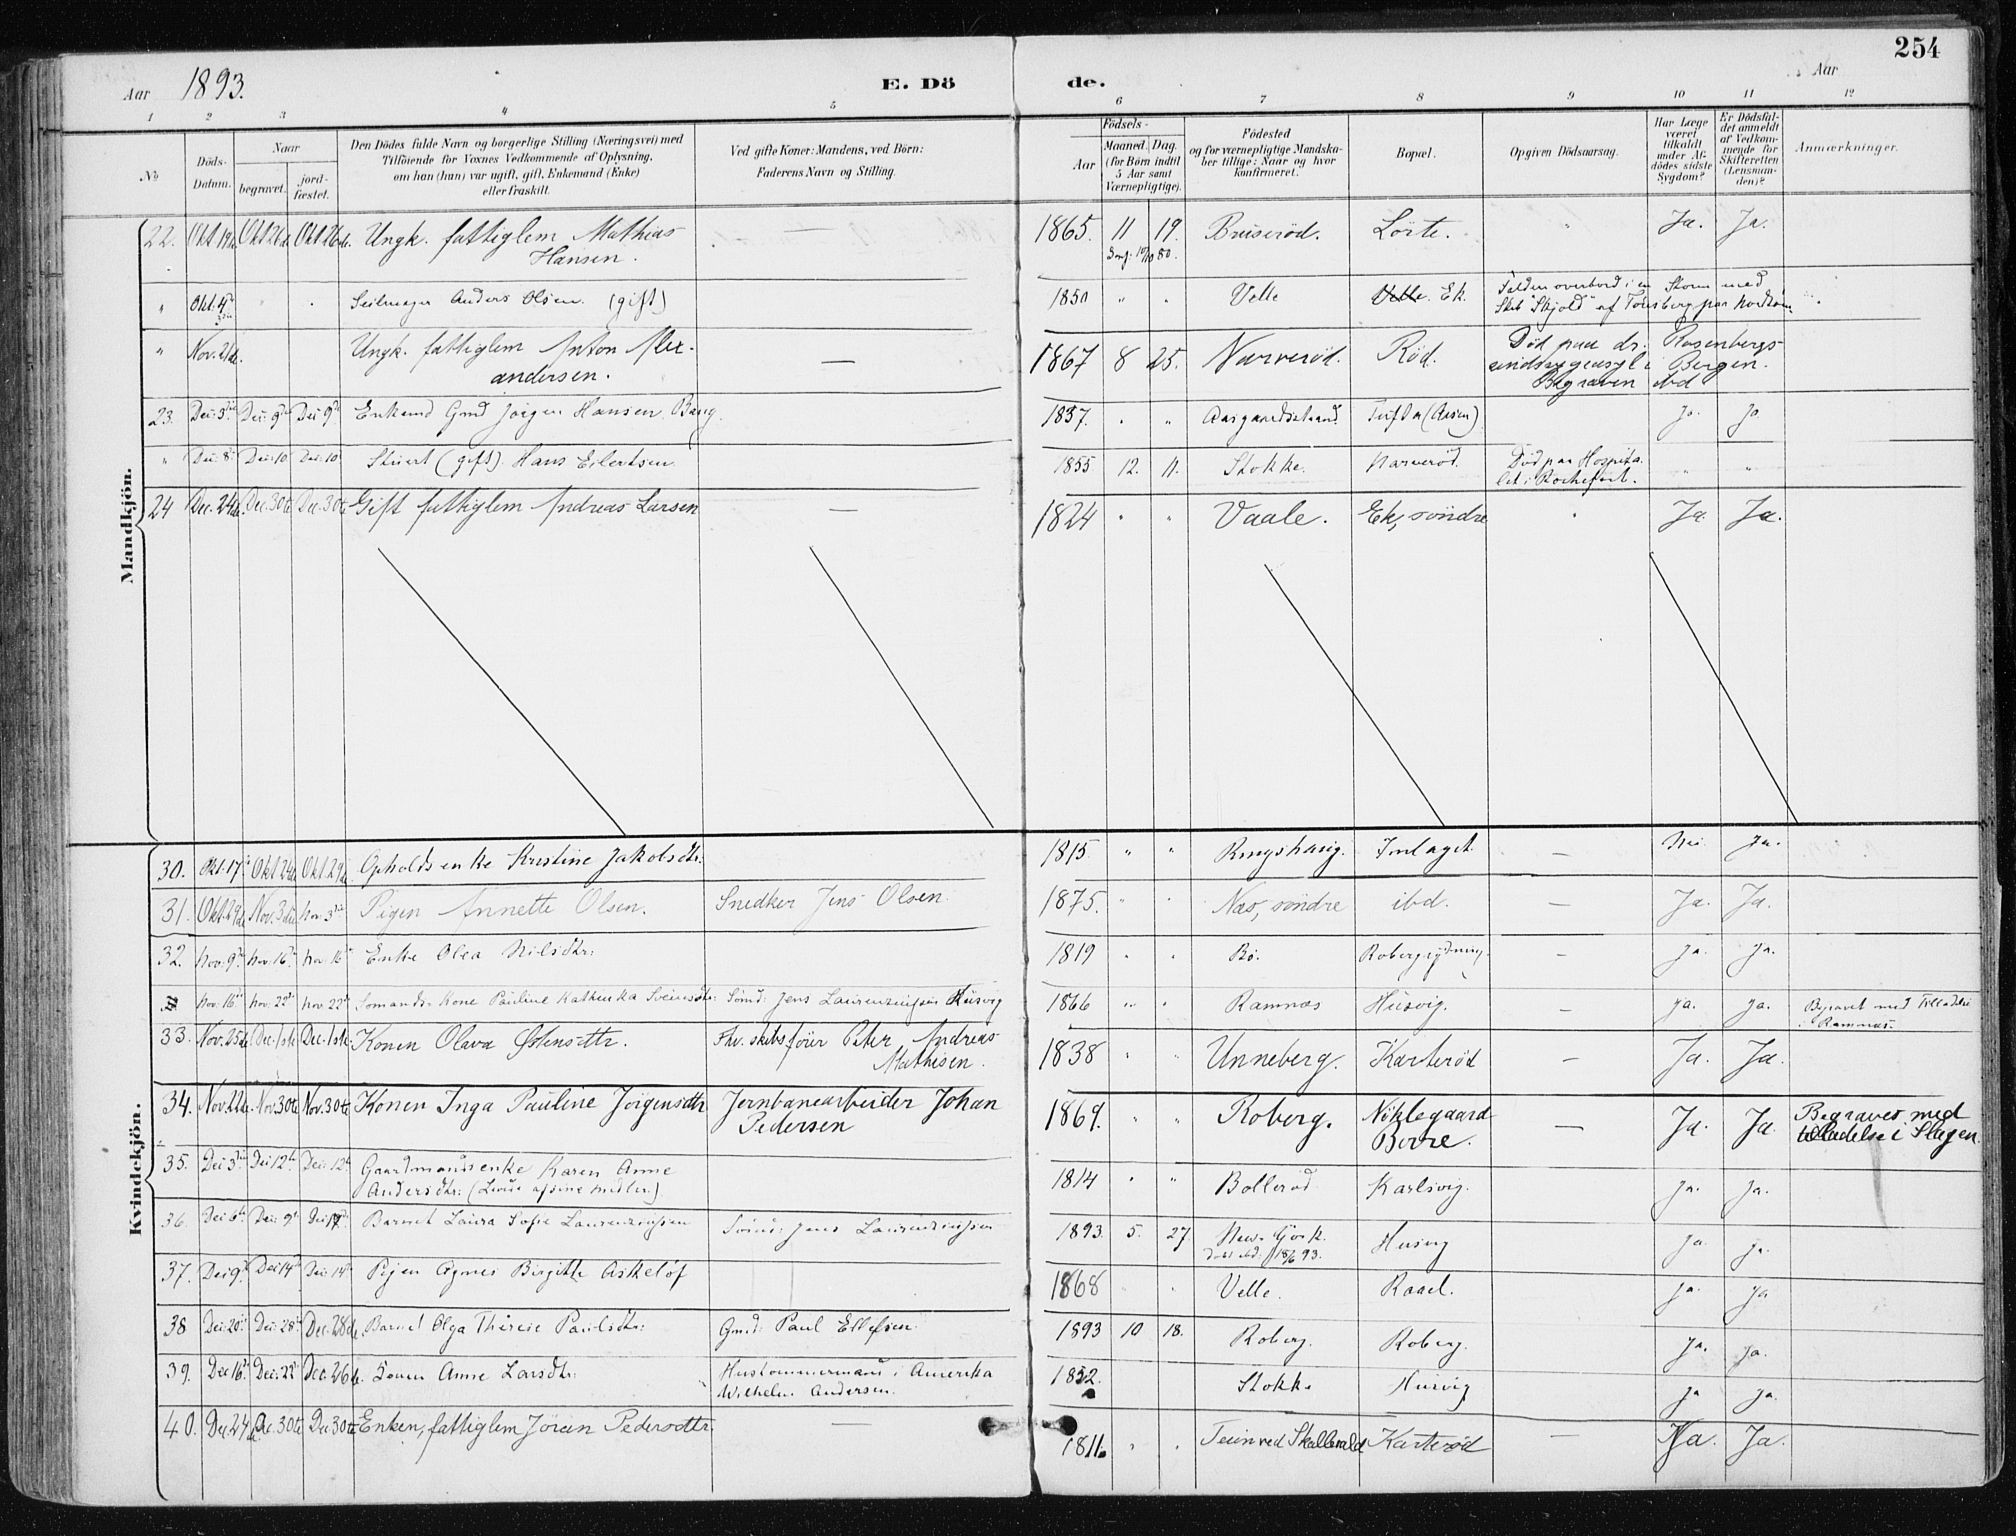 254
Aar 1893. E. Dö de. Aar
1 2 3 4 5 6 7 8 9 10 11 12
No
Döds-Datum.
Naar
begravet.
jord-fæstet.
Den Dödes fulde Navn og borgerlige Stilling (Næringsvei) med
Tilföiende for Voxnes Vedkommende af Oplysning,
om han (hun) var ugift, gift, Enkemand (Enke)
eller fraskilt.
Ved gifte Koner: Mandens, ved Börn:
Faderens Navn og Stilling.
Födsels-
Aar
Maaned. Dag.
(for Börn indtil
5 Aar samt
Værnepligtige).
Födested
og for værnepligtige Mandska-
ber tillige: Naar og hvor
konfirmeret.
Bopæl.
Opgiven Dödsaarsag.
Har Læge
været
tilkaldt
under Af-
dödes sidste
Sygdom?
Er Dödsfal-
det anmeldt
af Vedkom-
mende for
Skifteretten
(Lensman-
den)?
Anmærkninger.
Mandkjön.
22. Okt 19de Okt 26de Okt 26de. Ungk. fattiglem Mathias Hansen. — 1865. 11 19. Bruseröd. Lörte. " Ja. Ja.
" Okt. 4de Seilmager Anders Olsen. (gift) 1850 " " Velle Velle. Ek. Falden overbord i en Storm med
Skib "Skjold" af Tönsberg paa Nordsöen
" Nov. 21de. Ungk. fattiglem Anton Alex-
andersen. — 1867 8 25. Narveröd. Röd. Död paa dr. Rosenbergs
sindssygeasyl i Bergen.
Begraven ibd
23. Dec. 3die Dec. 9de Dec 9de Enkemd Gmd Jörgen Hansen Bang. 1837. " " Aasgaardstrand. Tufta (Aasen) Ja. Ja.
" Dec. 8de Dec 10 Dec 10 Stuert (gift). Hans Eilertsen. 1855 12. 11. Stokke. Narveröd. Död paa Hospita-
let i Rochefort. " "
24 Dec. 24de. Dec. 30te Dec. 30te Gift fattiglem Andreas Larsen — 1824 " " Vaale. Ek, söndre " Ja Ja.
Kvindekjön.
30. Okt. 17de Okt 24de Okt. 29de. Opholds enke Kristine Jakobsdtr: 1815 " " Ringshaug. Innlaget. — Nei Ja.
31. Okt. 29de Nov. 3die Nov. 3die Pigen Annette Olsen. Snedker Jens Olsen. 1875. " " Næs, söndre ibd. — Ja. Ja.
32. Nov. 9de Nov. 16de Nov. 16de Enke Olea Nilsdtr: 1819 " " Bö. Robergrydning. — Ja. Ja.
Nov. 16de Nov. 22de Nov 22de Sömands-Kone Pauline Kathinka Svensdtr: Sömd: Jens Laurentziussen Husvig 1866 " " Ramnæs Husvig. — Ja. Ja. Begravet med Tilladelse
i Ramnæs.
33. Nov. 25de Dec. 1ste Dec. 1ste Konen Olava Olsensdtr. Fhv. skibsförer Peter Andreas
Mathisen. 1838 " " Unneberg. Karteröd — Ja. Ja.
34. Nov. 22de. Nov. 30te Nov. 30te Konen Inga Pauline Jörgensdtr Jernbanearbeider Johan
Pedersen 1869. " " Roberg. Nöklegaard
Borre. — Ja. Ja. Begraves med
tilladelse i Slagen
35. Dec 3die Dec 12te Dec 12te Gaardmandsenke Karen Anne
Andersdtr: (Levede af sine Midler.) 1814 " " Bolleröd Karlsvig. Ja. Ja.
36. Dec 6te Dec. 9de Barnet Laura Sofie Laurentziussen Sömd: Jens Laurentziussen 1893. 5. 27. New-York.
Döbt ibd: 18/6 93. Husvig Ja. Ja.
37. Dec 9de Dec 14de Dec 14de Pigen Agnes Birgitte Askelöf 1868 " " Velle. Raael. Ja. Ja
38 Dec 20de Dec. 28de Dec. 28de. Barnet Olga Therese Paulsdtr: Gmd: Paul Ellefsen 1893 10 18. Roberg. Roberg. Ja. Ja.
39. Dec 16de Dec. 22de Dec. 26de. Konen Anne Larsdtr: Hustømmermand i Amerika
Wilhelm Andersen. 1852. Stokke Husvig Ja Ja.
40. Dec. 24de Dec. 30te Dec 30te Enken, fattiglem Jören Pedersdtr. — 1816 " " Teien ved Skallevold Karteröd — Ja. Ja.